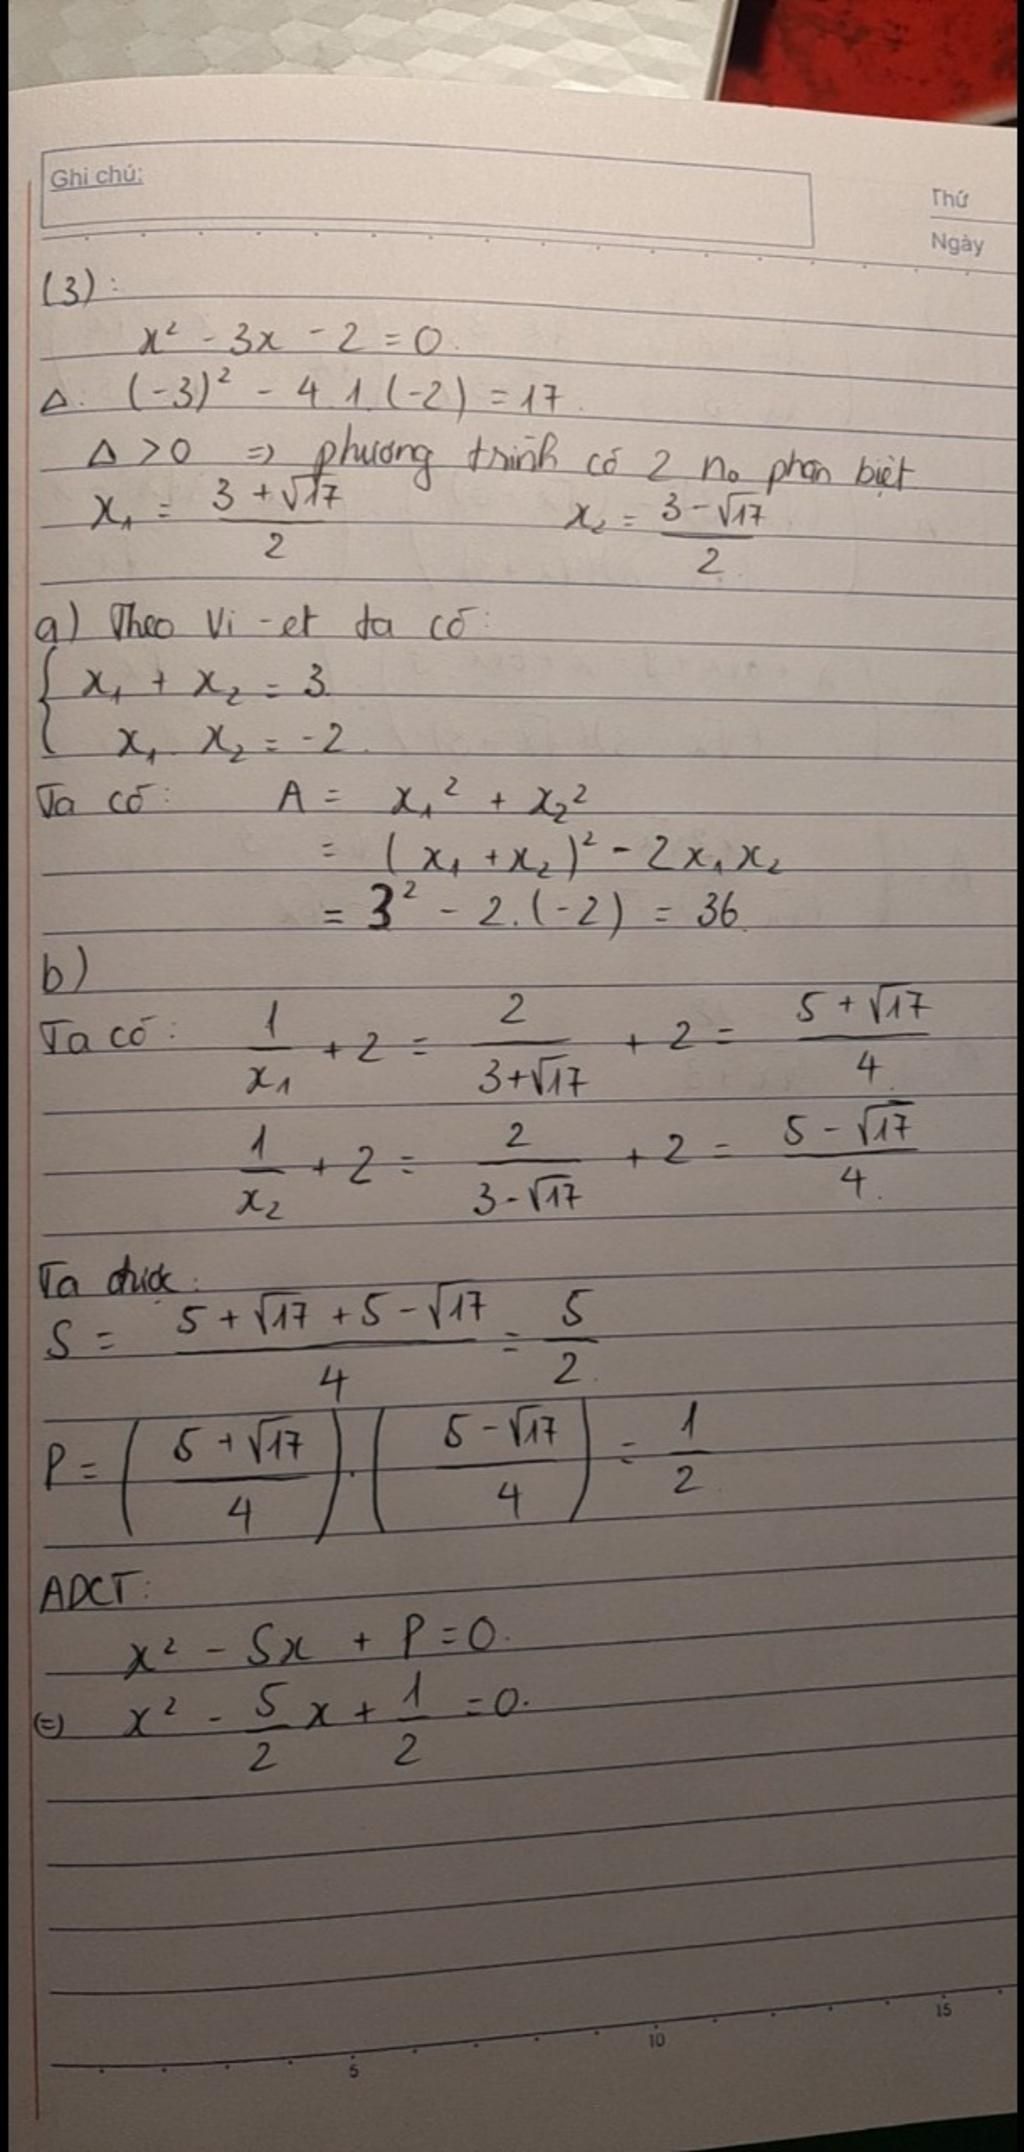 Ghi chú:
Thứ
Ngày
(3):
x² - 3x - 2 = 0.
Δ: (-3)² - 4.1.(-2) = 17.
Δ > 0 => phương trình có 2 no phân biệt
x₁ = (3 + √17)/2    x₂ = (3 - √17)/2
a) Theo Vi-et ta có:
{ x₁ + x₂ = 3.
x₁ . x₂ = -2.
Ta có: A = x₁² + x₂²
= (x₁ + x₂)² - 2x₁x₂
= 3² - 2.(-2) = 36.
b)
Ta có: 1/x₁ + 2 = 2/(3+√17) + 2 = (5 + √17)/4.
1/x₂ + 2 = 2/(3-√17) + 2 = (5 - √17)/4.
Ta được:
S = (5 + √17 + 5 - √17)/4 = 5/2.
P = ((5 + √17)/4) . ((5 - √17)/4) = 1/2.
ADCT:
x² - Sx + P = 0.
(=) x² - 5/2 x + 1/2 = 0.
5 10 15